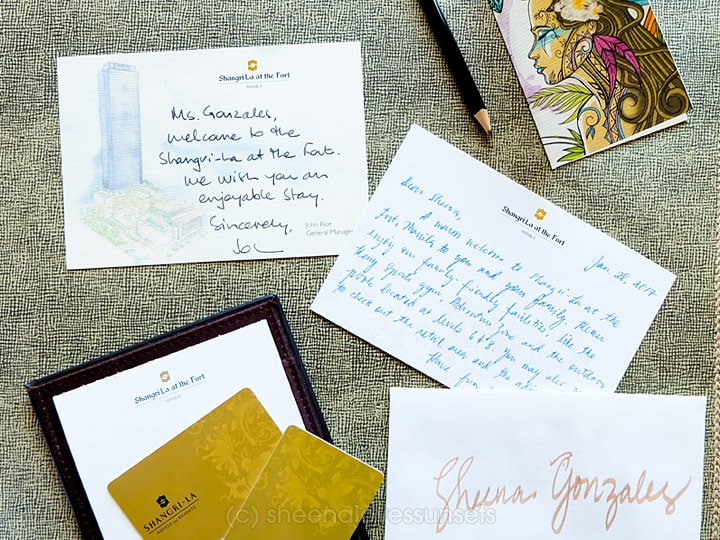 Shangri-La at the Fort
MANILA
Ms. Gonzales,
welcome to the
Shangri-La at the Fort.
We wish you an
enjoyable stay.
Sincerely,
John Rice
General Manager
Shangri-La at the Fort
MANILA
Jan. 26, 2017
Dear Sheena,
A warm welcome to Shangri-La at the
Fort, Manila to you and your family. Please
enjoy our family-friendly facilities, like the
Kerry Sports gym, Adventure Zone and the outdoor
pools located at levels 6 & 8. You may also
to check out the retail area and the
Shangri-La at the Fort
MANILA
SHANGRI-LA
HOTELS and RESORTS
Sheena Gonzales
(c) sheenalovessunsets